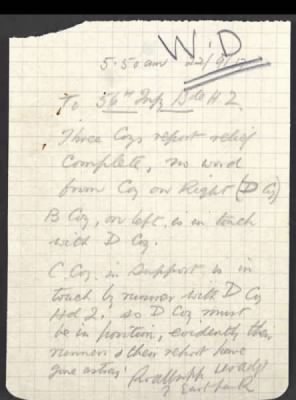 W.D
5.50 am 22/9/17
To 56th Inf Bde H Q.
Three Coys report relief
complete, no word
from Coy on Right (D Coy)
B Coy, on left, is in touch
with D Coy.
C Coy in support is in
touch by runner with D Coy
Hd Q. so D Coy must
be in position, evidently their
runners & their report have
gone astray.